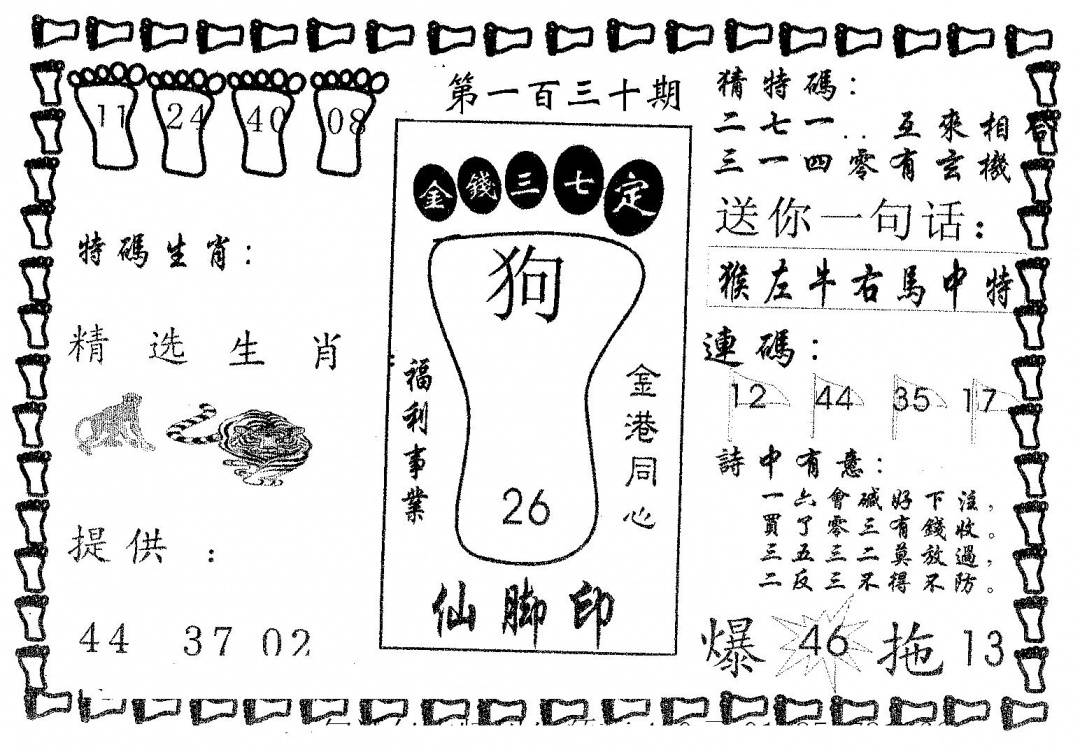 11 24 40 08
特碼生肖:
精选生肖
提供:
44 37 02
第一百三十期
金錢三七定
狗
福利事業
金港同心
26
仙脚印
猜特碼:
二七一..互來相
三一四零有玄機
送你一句话:
猴左牛右馬中特
連碼:
12 44 35 17
詩中有意:
一六會碱好下注,
買了零三有錢收。
三五三二莫放過,
二反三不得不防。
爆 46 拖 13